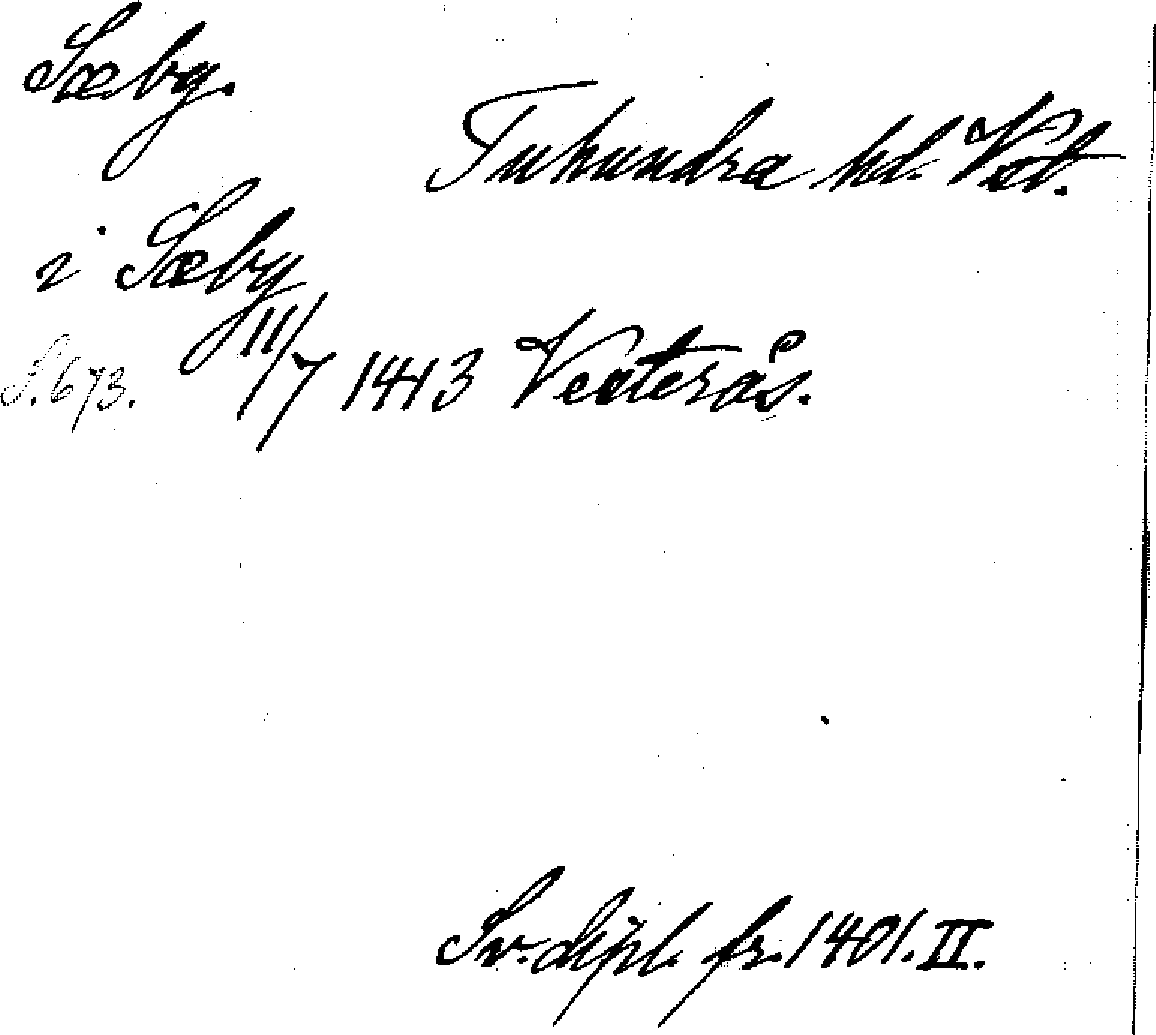 Sæby.
Tuhundra hd. Vstl.
i Sæby
S. 673. 11/7 1413 Vesterås.
Sv. dipl. fr. 1401. II.